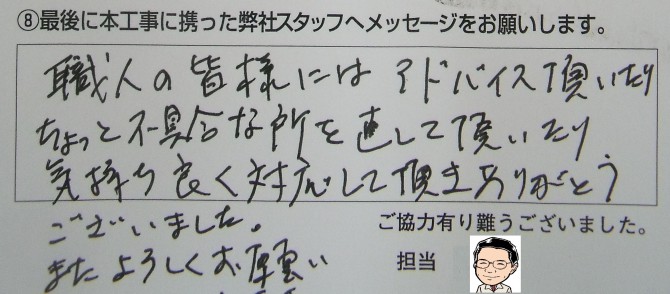 ⑧最後に本工事に携った弊社スタッフへメッセージをお願いします。
職人の皆様にはアドバイス頂いたり
ちょっと不具合な所を直して頂いたり
気持ち良く対応して頂きありがとう
ございました。
またよろしくお願い
ご協力有り難うございました。
担当